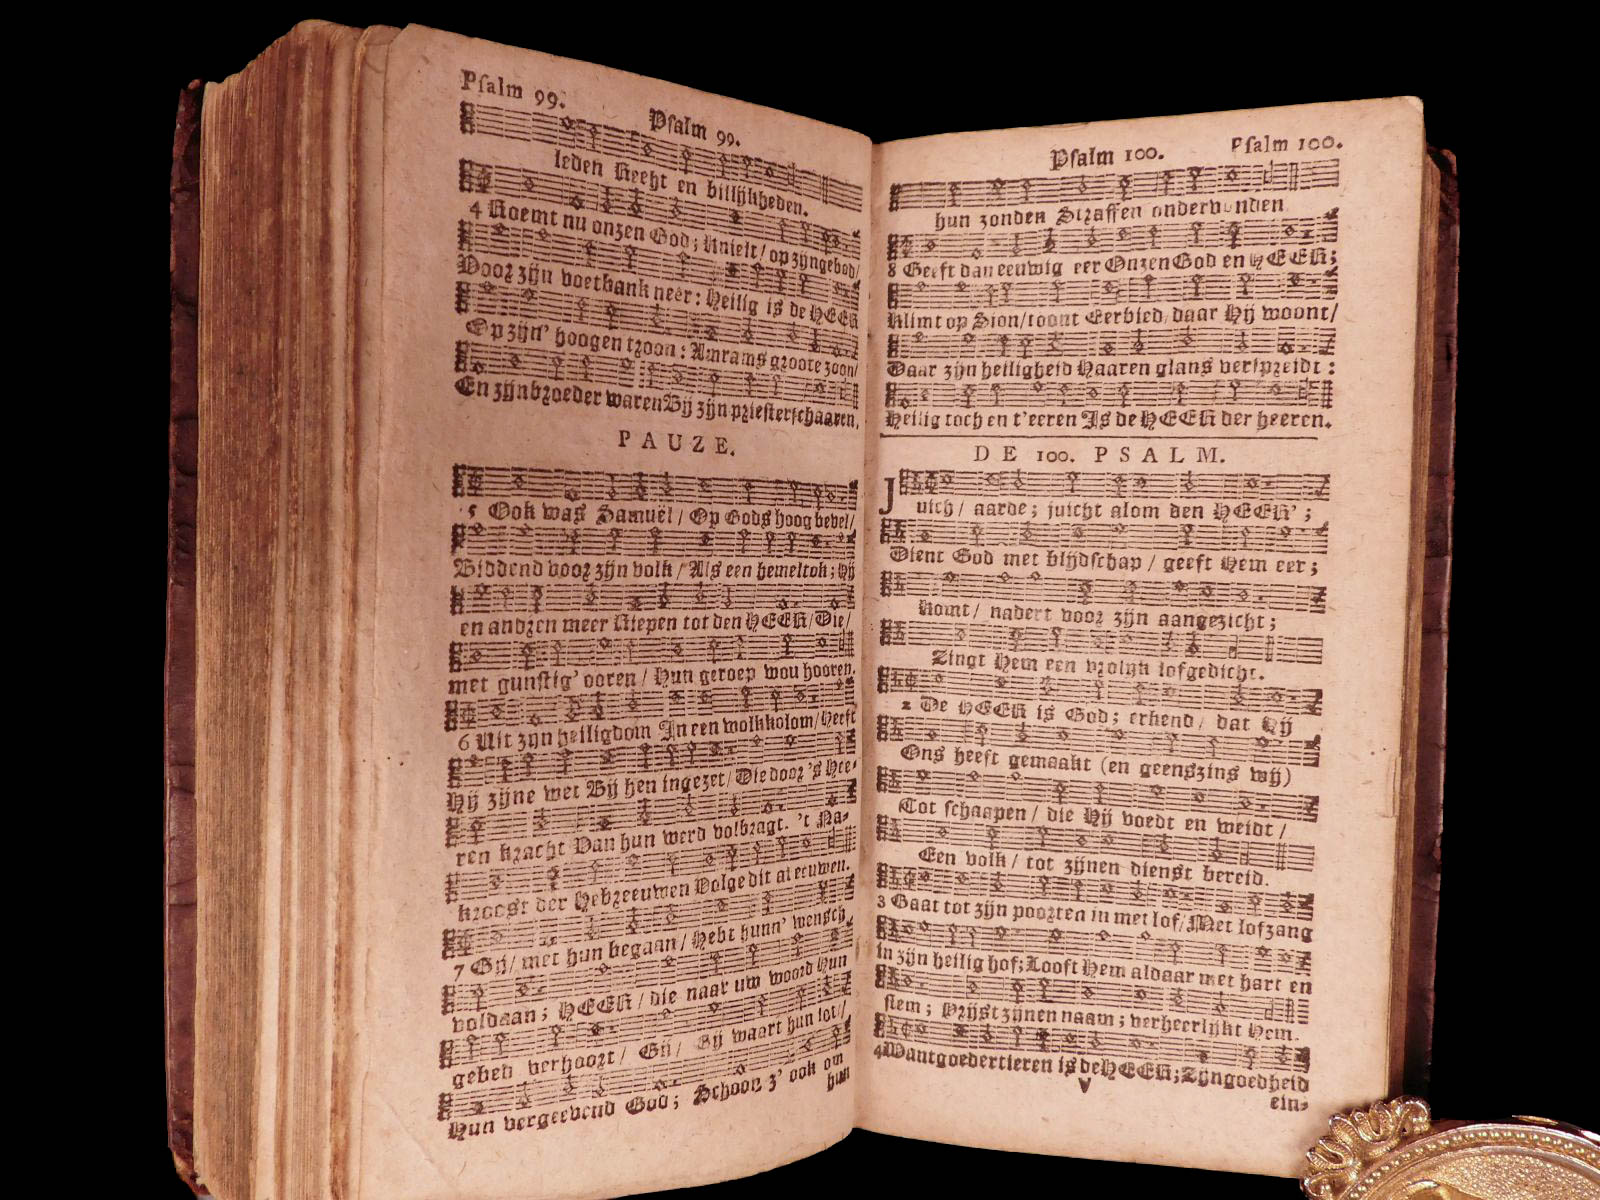 Psalm 99.
Psalm 99.
leden Recht en billijkheden.
4 Roemt nu onzen God; knielt / op zijn gebod /
Voor zijn voetbank neer: Heilig is de HEER
Op zijn' hoogen troon: Amrams groote zoon /
En zijn broeder waren Bij zijn priesterschaaren.
PAUZE.
5 Ook was Samuël / Op Gods hoog bevel /
Biddend voor zijn volk / Als een hemeltolk; Hij
en andren meer Riepen tot den HEER / Die /
met gunstig' ooren / Hun geroep wou hooren.
6 Uit zijn heiligdom In een wolkkolom / Heeft
Hij zijne wet Bij hen ingezet / Die door 's Hee-
ren kracht Van hun werd volbragt. 't Na-
kroost der Hebreeuwen Volge dit al eeuwen.
7 Gij / met hun begaan / Hebt hunn' wensch
voldaan; HEER / die naar uw woord Hun
gebed verhoort / Gij / Gij waart hun tot /
Hun vergeevend God; Schoon z' ook om
hun
Psalm 100.
Psalm 100.
hun zonden Straffen ondervonden
8 Geeft dan eeuwig eer Onzen God en HEER;
Klimt op Sion / toont Eerbied, daar Hij woont /
Daar zijn heiligheid Haaren glans verspreidt:
Heilig toch en t'eeren Is de HEER der heeren.
DE 100. PSALM.
Juich / aarde; juicht alom den HEER';
Dient God met blijdschap / geeft Hem eer;
Komt / nadert voor zijn aangezicht;
Zingt Hem een vrolijk lofgedicht.
2 De HEER is God; erkend / dat Hij
Ons heeft gemaakt (en geenszins wij)
Tot schaapen / die Hij voedt en weidt /
Een volk / tot zijnen dienst bereid.
3 Gaat tot zijn poorten in met lof / Met lofzang
in zijn heilig hof; Looft Hem aldaar met hart en
stem; Prijst zijnen naam; verheerlijkt Hem.
4 Want goedertieren is de HEER; Zijn goedheid
V
ein-